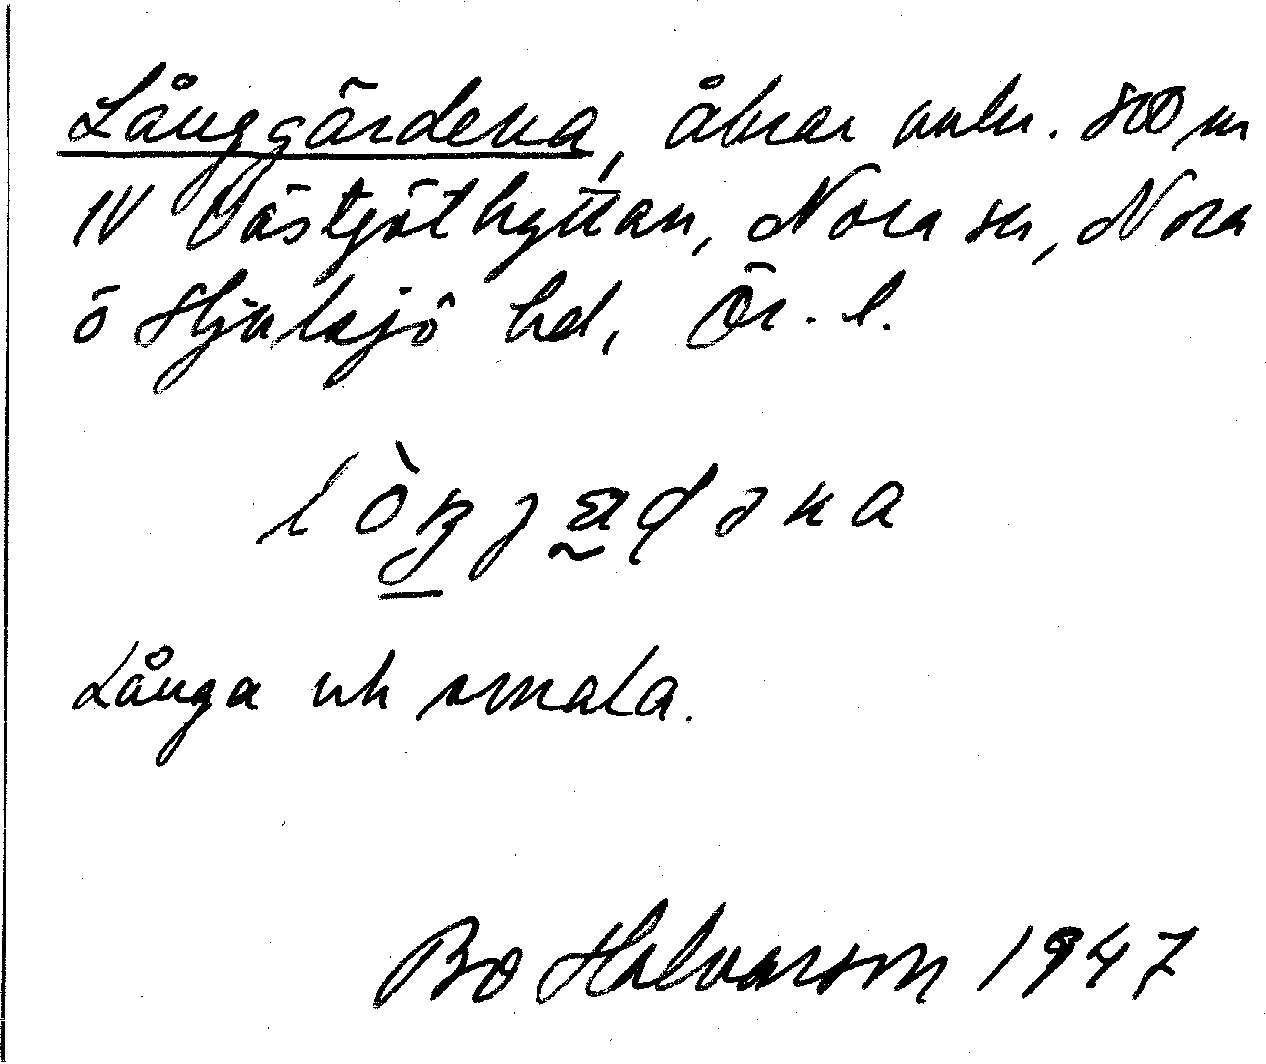 Långgärdena, åkrar omkr. 800 m
NV Västgöthyttan, Nora sn, Nora
o Hjulsjö hd, Ör. l.
Långa och smala.
Bo Halvarson 1947